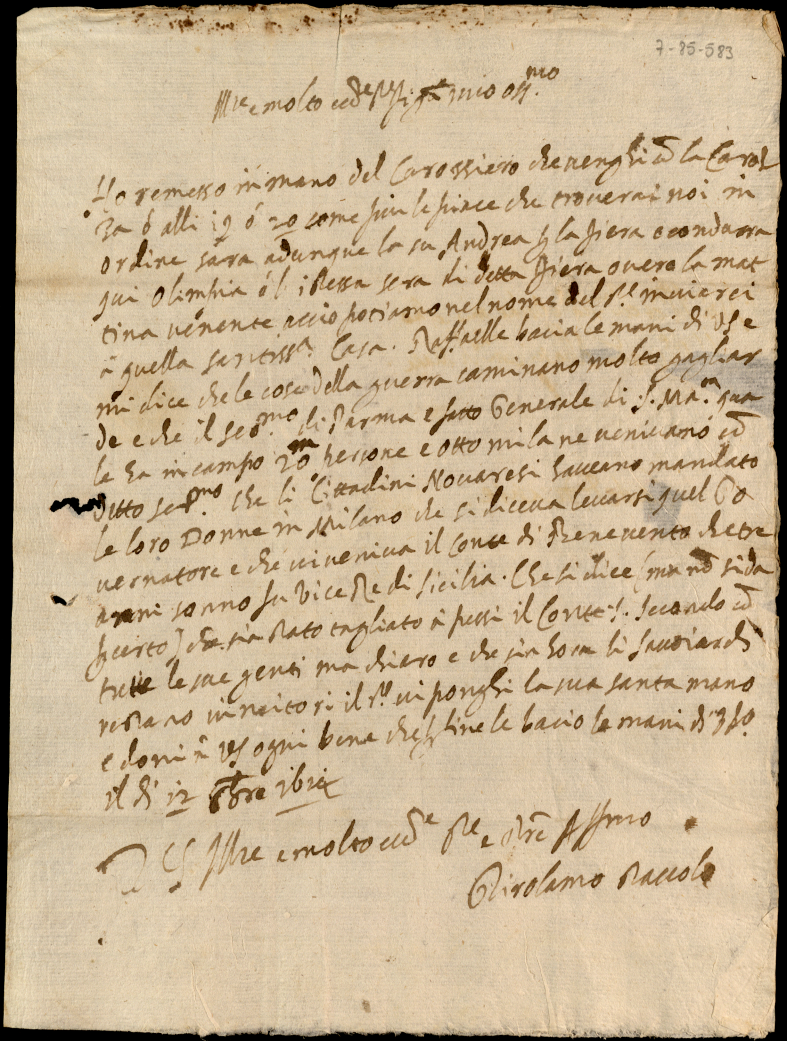 7-85-583
Ill.re e molto ecc.te mio oss.mo
Ho remesso in mano del Carossiero che venghi cō la Caroz
za ó alli 19 ó 20 come piu le piace che troverai noi in
ordine sara adunque la su Andrea la fiera o condurra
qui Olimpia ó l'istessa sera di detta fiera overo la mat
tina venente accio potiamo nel nome del inviarci
á quella santiss.a Casa. Raffaelle bacia le mani di VS e
mi dice che le cose della guerra caminano molto gagliar
de e che il ser.mo di Parma e fatto Generale di S. Ma.tà qua
le ha in campo 20 persone e otto mila ne venivano cō
detto ser.mo che li Cittadini Novaresi haveano mandato
le loro Donne in Milano che si diceva levarsi quel Go
vernatore e che vi veniva il Conte di Benevento che tre
anni sonno fu Vice Re di Sicilia. Che si dice (ma nō si da
certo) che sia stato tagliato á pezzi il Conte S. Secondo cō
tutte le sue genti ma chiaro e che sin hora li Savoiardi
restano vincitori il vi ponghi la sua santa mano
e doni á VS ogni bene che fine le bacio le mani di
il dí 12 8bre
D VS Ill.re e molto ecc.te
Girolamo